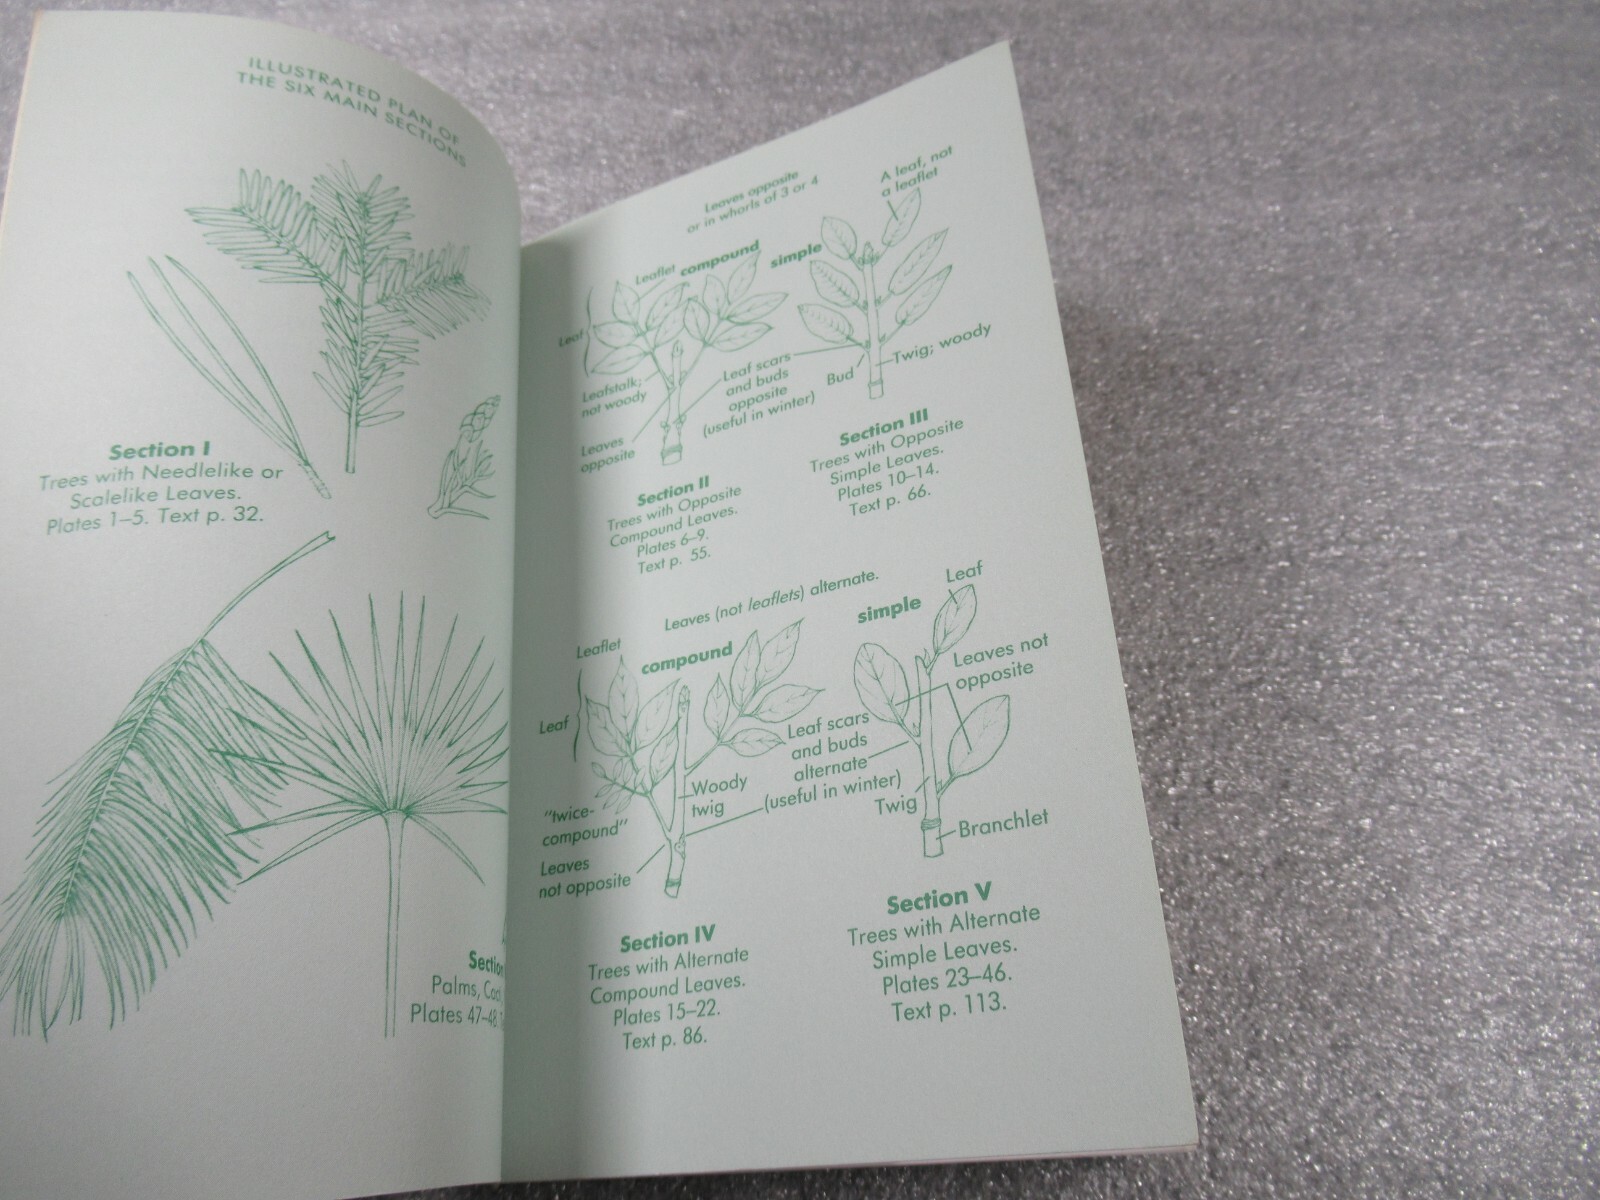 ILLUSTRATED PLAN OF
THE SIX MAIN SECTIONS
Section I
Trees with Needlelike or
Scalelike Leaves.
Plates 1–5. Text p. 32.
Section
Palms,
Plates 47–48
Leaves opposite
or in whorls of 3 or 4
A leaf, not
a leaflet
Leaflet
compound
simple
Leaf
Leafstalk;
not woody
Leaf scars
and buds
opposite
(useful in winter)
Bud
Twig; woody
Leaves
opposite
Section II
Trees with Opposite
Compound Leaves.
Plates 6–9.
Text p. 55.
Section III
Trees with Opposite
Simple Leaves.
Plates 10–14.
Text p. 66.
Leaves (not leaflets) alternate.
Leaflet
compound
simple
Leaf
Leaf
Leaves not
opposite
Leaf scars
and buds
alternate
(useful in winter)
Woody
twig
"twice-
compound"
Leaves
not opposite
Twig
Branchlet
Section IV
Trees with Alternate
Compound Leaves.
Plates 15–22.
Text p. 86.
Section V
Trees with Alternate
Simple Leaves.
Plates 23–46.
Text p. 113.